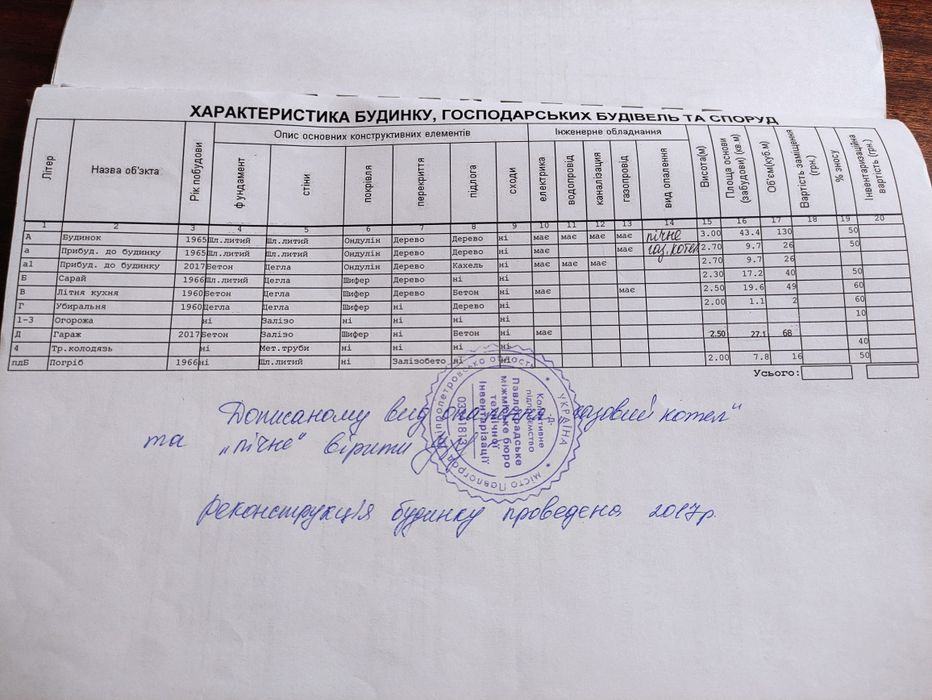 ХАРАКТЕРИСТИКА БУДИНКУ, ГОСПОДАРСЬКИХ БУДІВЕЛЬ ТА СПОРУД
Літер Назва об'єкта Рік побудови Опис основних конструктивних елементів Інженерне обладнання Висота(м) Площа основи (забудови) (кв.м) Об'єм(куб.м) Вартість заміщення (грн.) % зносу Інвентаризаційна вартість (грн.)
фундамент стіни покрівля перекриття підлога сходи електрика водопровід каналізація газопровід вид опалення
1 2 3 4 5 6 7 8 9 10 11 12 13 14 15 16 17 18 19 20
А Будинок 1965 Шл.литий Шл.литий Ондулін Дерево Дерево ні має має має має пічне 3.00 43.4 130 50
а Прибуд. до будинку 1965 Шл.литий Шл.литий Ондулін Дерево Дерево ні має має газ.котел 2.70 9.7 26 50
а1 Прибуд. до будинку 2017 Бетон Цегла Ондулін Дерево Кахель ні має має має 2.70 9.7 26
Б Сарай 1966 Шл.литий Цегла Шифер Дерево Дерево ні 2.30 17.2 40 50
В Літня кухня 1960 Бетон Цегла Шифер Дерево Бетон ні має має 2.50 19.6 49 60
Г Убиральня 1960 Цегла Цегла Шифер ні Дерево ні 2.00 1.1 2 60
1-3 Огорожа ні Залізо ні ні ні ні 10
Д Гараж 2017 Бетон Залізо Шифер ні Бетон ні має 2.50 27.1 68
4 Тр.колодязь ні Мет.труби ні ні ні ні 40
пдБ Погріб 1966 ні Шл.литий ні Залізобето ні ні 2.00 7.8 16 50
Усього:
Дописаному вид опалення "газовий котел"
та "пічне" вірити
УКРАЇНА
Дніпропетровська область
місто Павлоград
Комунальне
підприємство
Павлоградське
міжміське бюро
технічної
інвентаризації
Реконструкція будинку проведена 2017р.